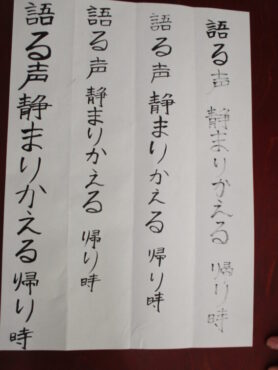 語る声静まりかえる帰り時
語る声静まりかえる帰り時
語る声静まりかえる帰り時
語る声静まりかえる帰り時